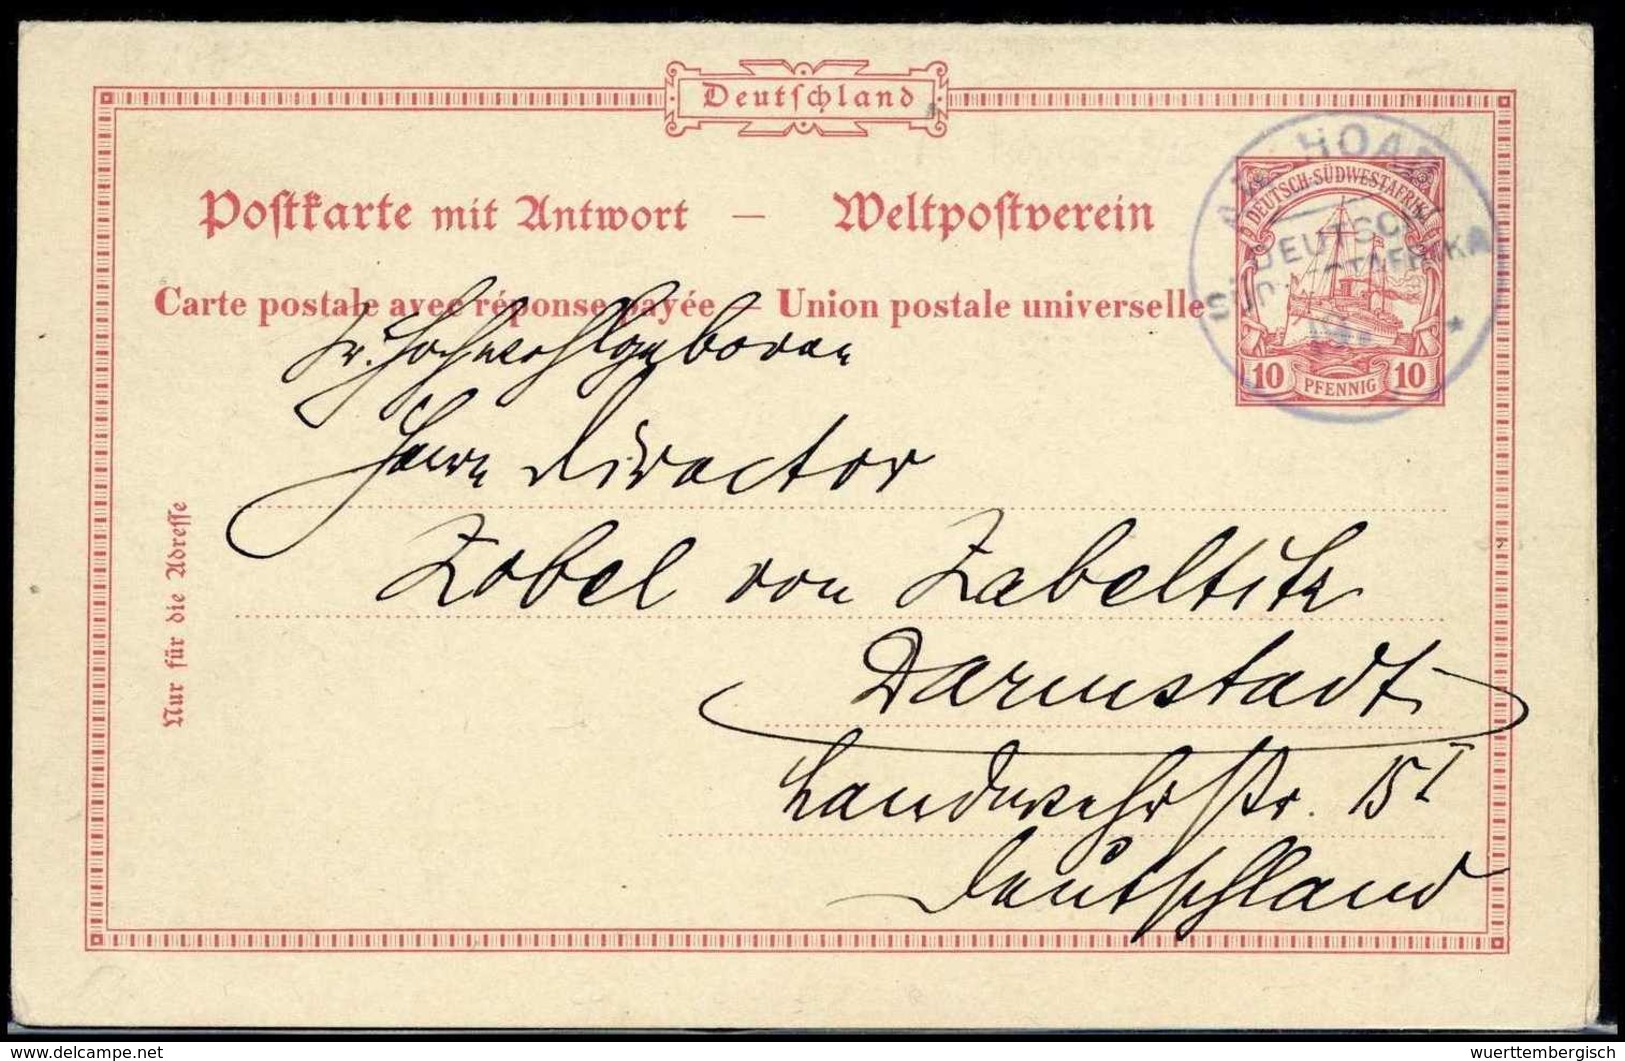 Deutschland
Postkarte mit Antwort — Weltpostverein
Carte postale avec réponse payée — Union postale universelle
DEUTSCH-SÜDWESTAFRIKA
10 PFENNIG 10
DEUTSCH
SÜDWESTAFRIKA
Sr. Hochwohlgeboren
Herrn Director
Zobel von Zabeltitz
Darmstadt
Landwehrstr. 15 I
Deutschland
Nur für die Adresse
www.delcampe.net
wuerttembergisch